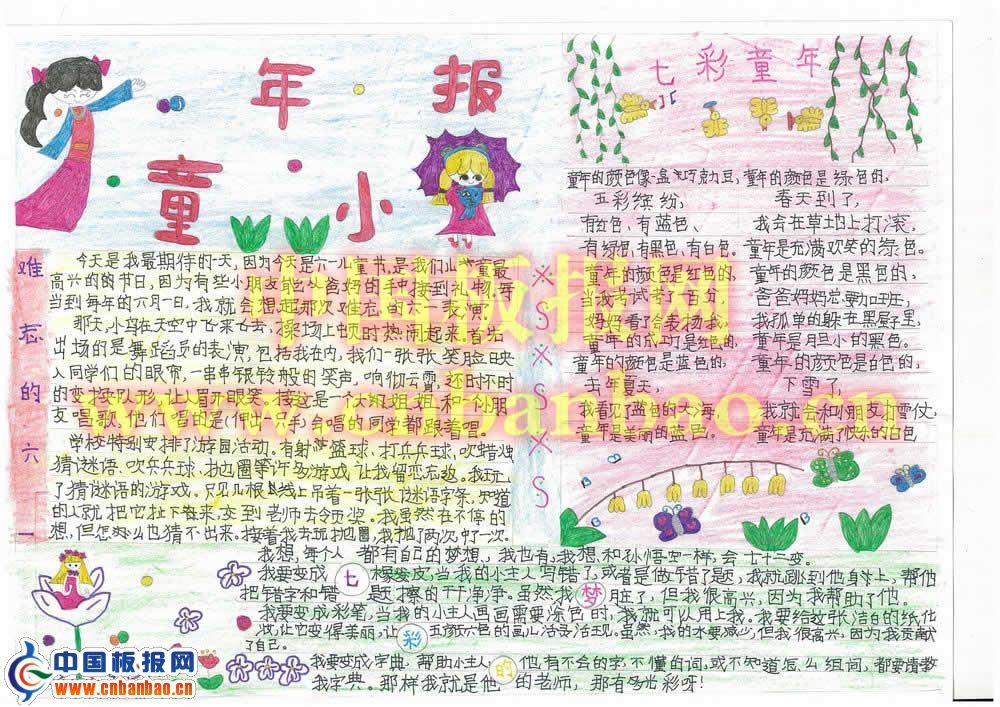 童年小报
七彩童年
童年的颜色像一盒巧克力豆,
五彩缤纷;
有红色、有蓝色、
有绿色、有黑色、有白色。
童年的颜色是红色的,
当我考试考了百分,
妈妈看了会表扬我,
童年的灯是红色的。
童年的颜色是蓝色的,
去年夏天,
我看见了蓝色的大海
童年是美丽的蓝色。
童年的颜色是绿色的,
春天到了,
我会在草地上打滚,
童年是充满欢笑的绿色。
童年的颜色是黑色的,
爸爸妈妈总要加班,
我孤单的躲在黑屋子里,
童年是胆小的黑色。
童年的颜色是白色的,
下雪了,
我就会和小朋友打雪仗,
童年是充满了快乐的白色
难忘的六一
今天是我最期待的一天,因为今天是六一儿童节,是我们儿童最
高兴的的节日,因为有些小朋友能从爸妈的手中接到礼物,每
当到每年的六月一日,我就会想起那次难忘的六一表演,
那天,小鸟在天空中飞来飞去,操场上顿时热闹起来,首先
出场的是舞蹈员的表演,包括我在内,我们一张张笑脸映
入同学们的眼帘,一串串银铃般的笑声,响彻云霄,还时不时
的变换队形,让人眉开眼笑。接这是一个大姐姐和一个小朋
友唱歌,他们唱的是《伸出一手》会唱的同学都跟着唱。
学校特别安排了游园活动。有射篮球、打乒乓球、吹蜡烛
猜谜语、吹乒乓球、抛圈等许多游戏让我留恋忘返。我玩
了猜谜语的游戏。只见几根线上吊着一张张谜语字条,知道
的人就把它扯下来,交到老师去领奖。我虽然在不停的
想,但怎么也猜不出来。接着我去玩抛圈,我抛了两次,中了一次。
XSXSXS
七彩梦的
我想,每个人都有自己的梦想,我也有,我想和孙悟空一样,会七十二变。
我要变成橡皮,当我的小主人写错了,或者是做错了题,我就跳到他身上,帮他
把错字和错题擦的干干净净。虽然我脏了,但我很高兴,因为我帮助了他。
我要变成彩笔,当我的小主人画画需要涂色时,我就可以用上我。我要给这张洁白的纸化
妆,让它变得美丽,让五颜六色的画儿活灵活现。虽然,我的水要减少,但我很高兴,因为我贡献
了自己。
我要变成字典,帮助小主人,他有不会的字,不懂的词,或不知道怎么组词,都要请教
我字典。那样我就是他的老师,那有多光彩呀!
中国板报网
www.cnbanbao.cn
中国板报网
www.cnbanbao.cn